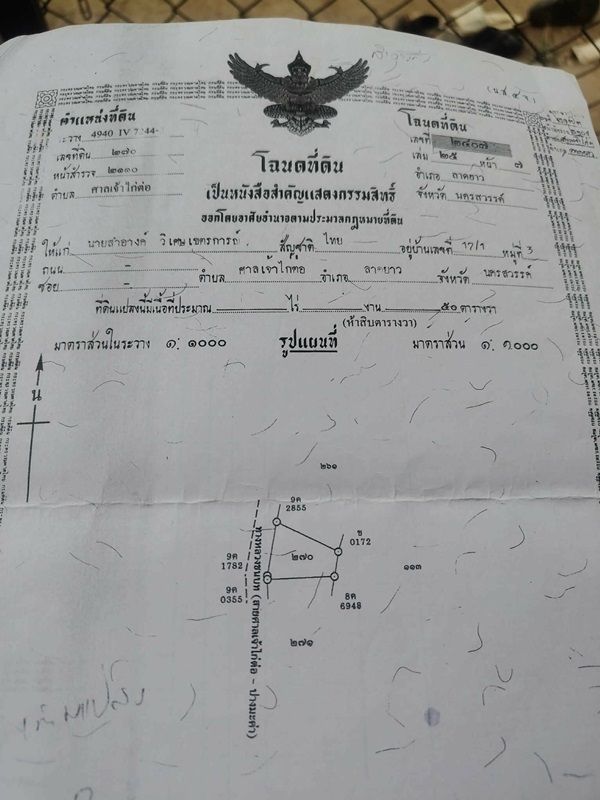 (น.ส.๔จ.)
ตำแหน่งที่ดิน
ระวาง 4940 IV 7244-
เลขที่ดิน ๒๗๐
หน้าสำรวจ ๒๑๑๐
ตำบล ศาลเจ้าไก่ต่อ
โฉนดที่ดิน
เลขที่ ๒๔๐๗
เล่ม ๒๕ หน้า ๗
อำเภอ ลาดยาว
จังหวัด นครสวรรค์
โฉนดที่ดิน
เป็นหนังสือสำคัญแสดงกรรมสิทธิ์
ออกโดยอาศัยอำนาจตามประมวลกฎหมายที่ดิน
ให้แก่ นายสำอางค์ วิเศษเขตรการณ์ สัญชาติ ไทย อยู่บ้านเลขที่ 17/1 หมู่ที่ 3
ถนน - ตำบล ศาลเจ้าไก่ต่อ อำเภอ ลาดยาว จังหวัด นครสวรรค์
ซอย -
ที่ดินแปลงนี้มีเนื้อที่ประมาณ - ไร่ - งาน ๕๐ ตารางวา
(ห้าสิบตารางวา)
มาตราส่วนในระวาง ๑: ๑๐๐๐ รูปแผนที่ มาตราส่วน ๑: ๑๐๐๐
น
๒๖๑
9ค
2855
ข
0172
๒๗๐
9ค
1782
๑๑๓
9ค
0355
8ค
6948
๒๗๑
ทางหลวงชนบท (สายศาลเจ้าไก่ต่อ - ปางมะค่า)